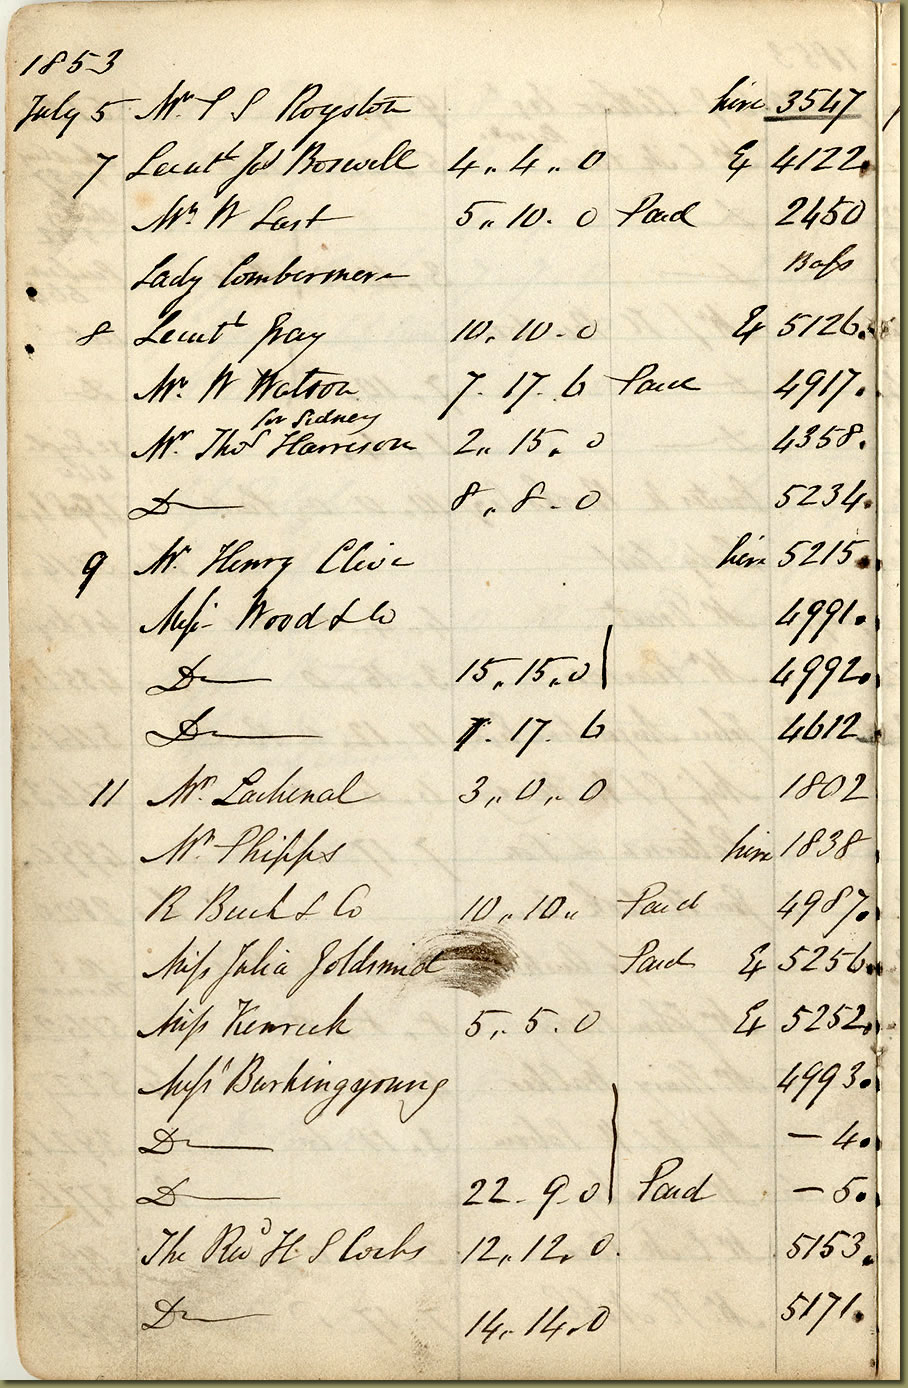 1853
July 5 Mr. P S Royston hire 3547
7 Lieutt Jos Boswell 4,, 4,, 0 Ex 4122.
Mr. W Last 5,, 10. 0 Paid 2450
Lady Combermere Bass
8 Lieutt Gray 10,, 10 - 0 Ex 5126.
Mr. W Watson 7. 17. 6 Paid 4917.
for Sidney
Mr. Thos Harrison 2,, 15,, 0 4358.
Do 8,, 8 - 0 5234.
9 Mr. Henry Clive hire 5215.
Messrs Wood & Co 4991.
Do 15,, 15,, 0 4992.
Do 7. 17. 6 4612
11 Mr. Lachenal 3,, 0,, 0 1802
Mr. Phipps hire 1838
R Buck & Co 10,, 10,, Paid 4987.
Miss Julia Goldsmid Paid Ex 5256.
Miss Kenrick 5,, 5. 0 Ex 5252.
Messrs 4993.
Do - 4.
Do 22 - 9 - 0 Paid - 5.
The Revd H S Cocks 12,, 12,, 0. 5153.
Do 14,, 14,, 0 5171.